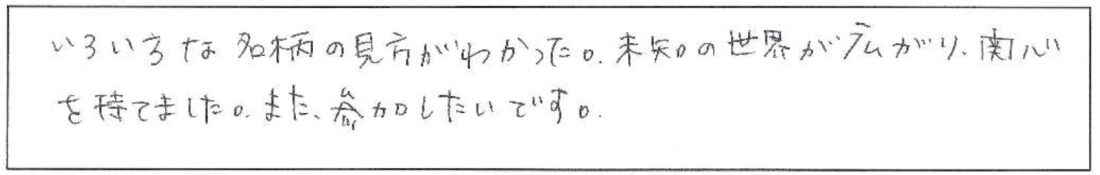 いろいろな銘柄の見方がわかった。未知の世界が広がり、関心
を持てました。また、参加したいです。